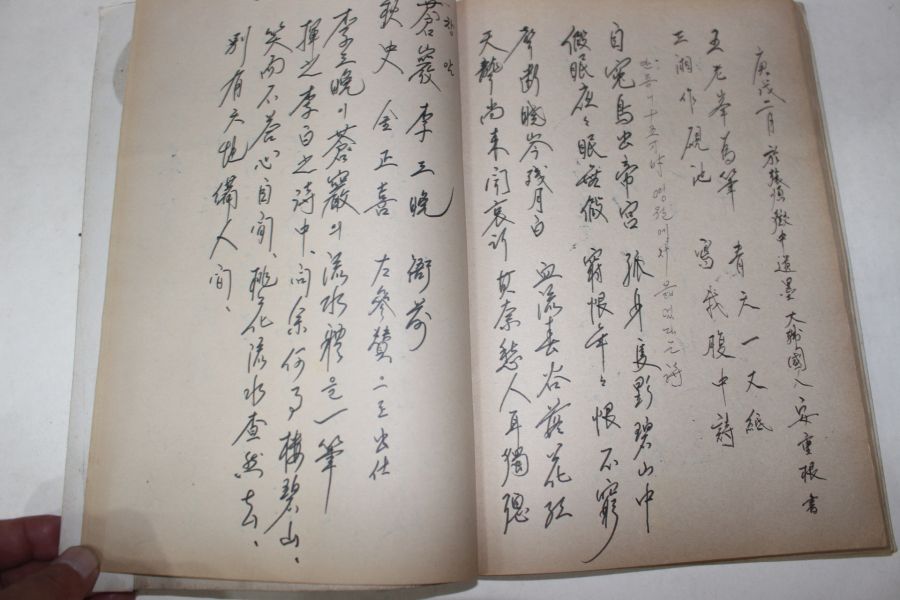 庚戌二月 於旅順獄中 遺墨 大韓國人 安重根 書
五老峯爲筆 青天一丈紙
三湘作硯池 寫我腹中詩
단종이 十五才
自冤鳥出帝宮 孤身隻影碧山中
假眠夜〻眠無假 窮恨年〻恨不窮
聲斷曉岑残月白 血流春谷落花紅
天聾尚未聞哀訴 何奈愁人耳獨聰
창암
蒼巖 李三晩
秋史 金正喜 左參贊
李三晩의 蒼巖의 流水體로 一筆
揮之 李白之詩中、問余何事棲碧山、
笑而不答心自閑、桃花流水杳然去、
別有天地非人间、